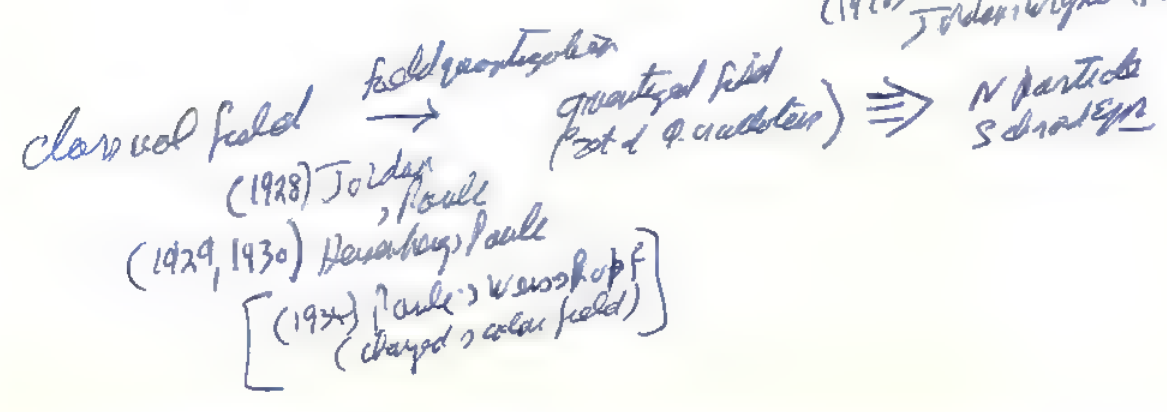 Jordan, Wigner
classical field → field quantization
quantized field
(set of q. oscillators) ⇛ N particle
Schrod Eqn
(1928) Jordan
, Pauli
(1929, 1930) Heisenberg, Pauli
[(1934) Pauli, Weisskopf
(charged scalar field)]